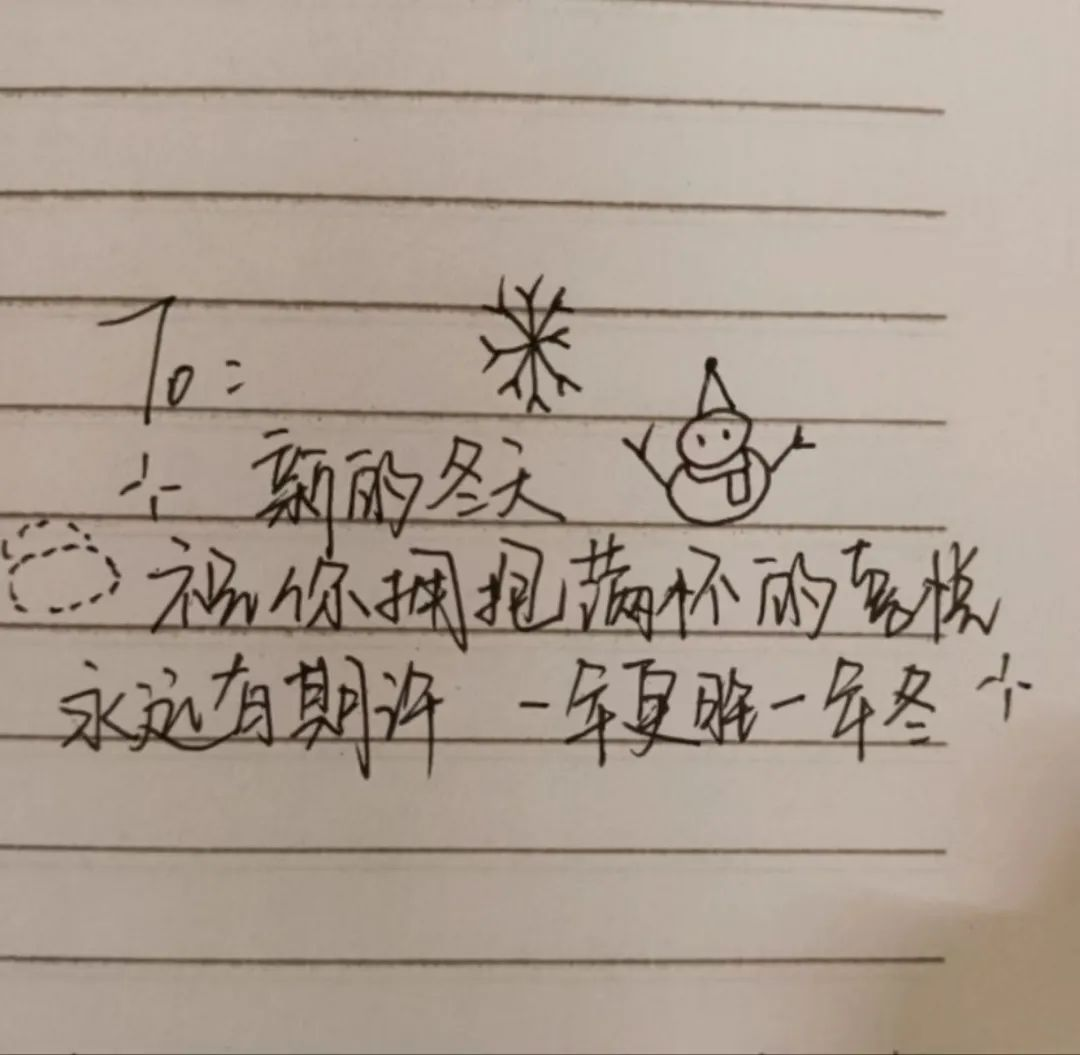 To:
新的冬天
祝你拥抱满怀的喜悦
永远有期许 一年夏 一年冬